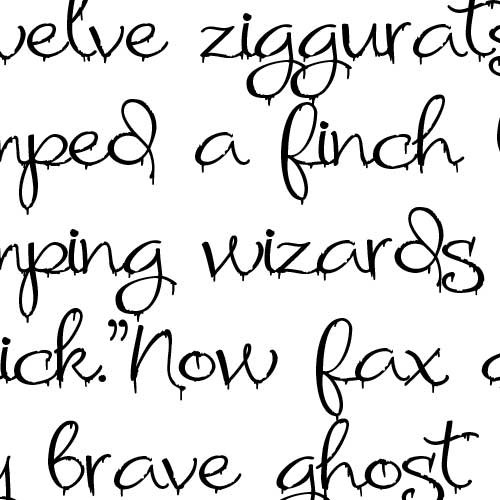 velve ziggurats
mped a finch
mping wizards
ick.”Now fax
y brave ghost